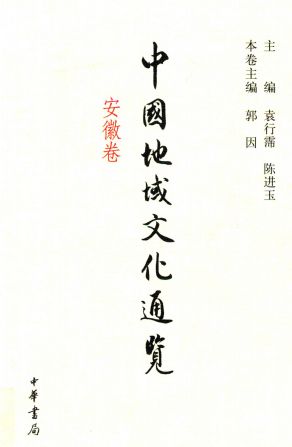 主编 袁行霈 陈进玉
本卷主编 郭因
中國地域文化通覽
安徽卷
中華書局